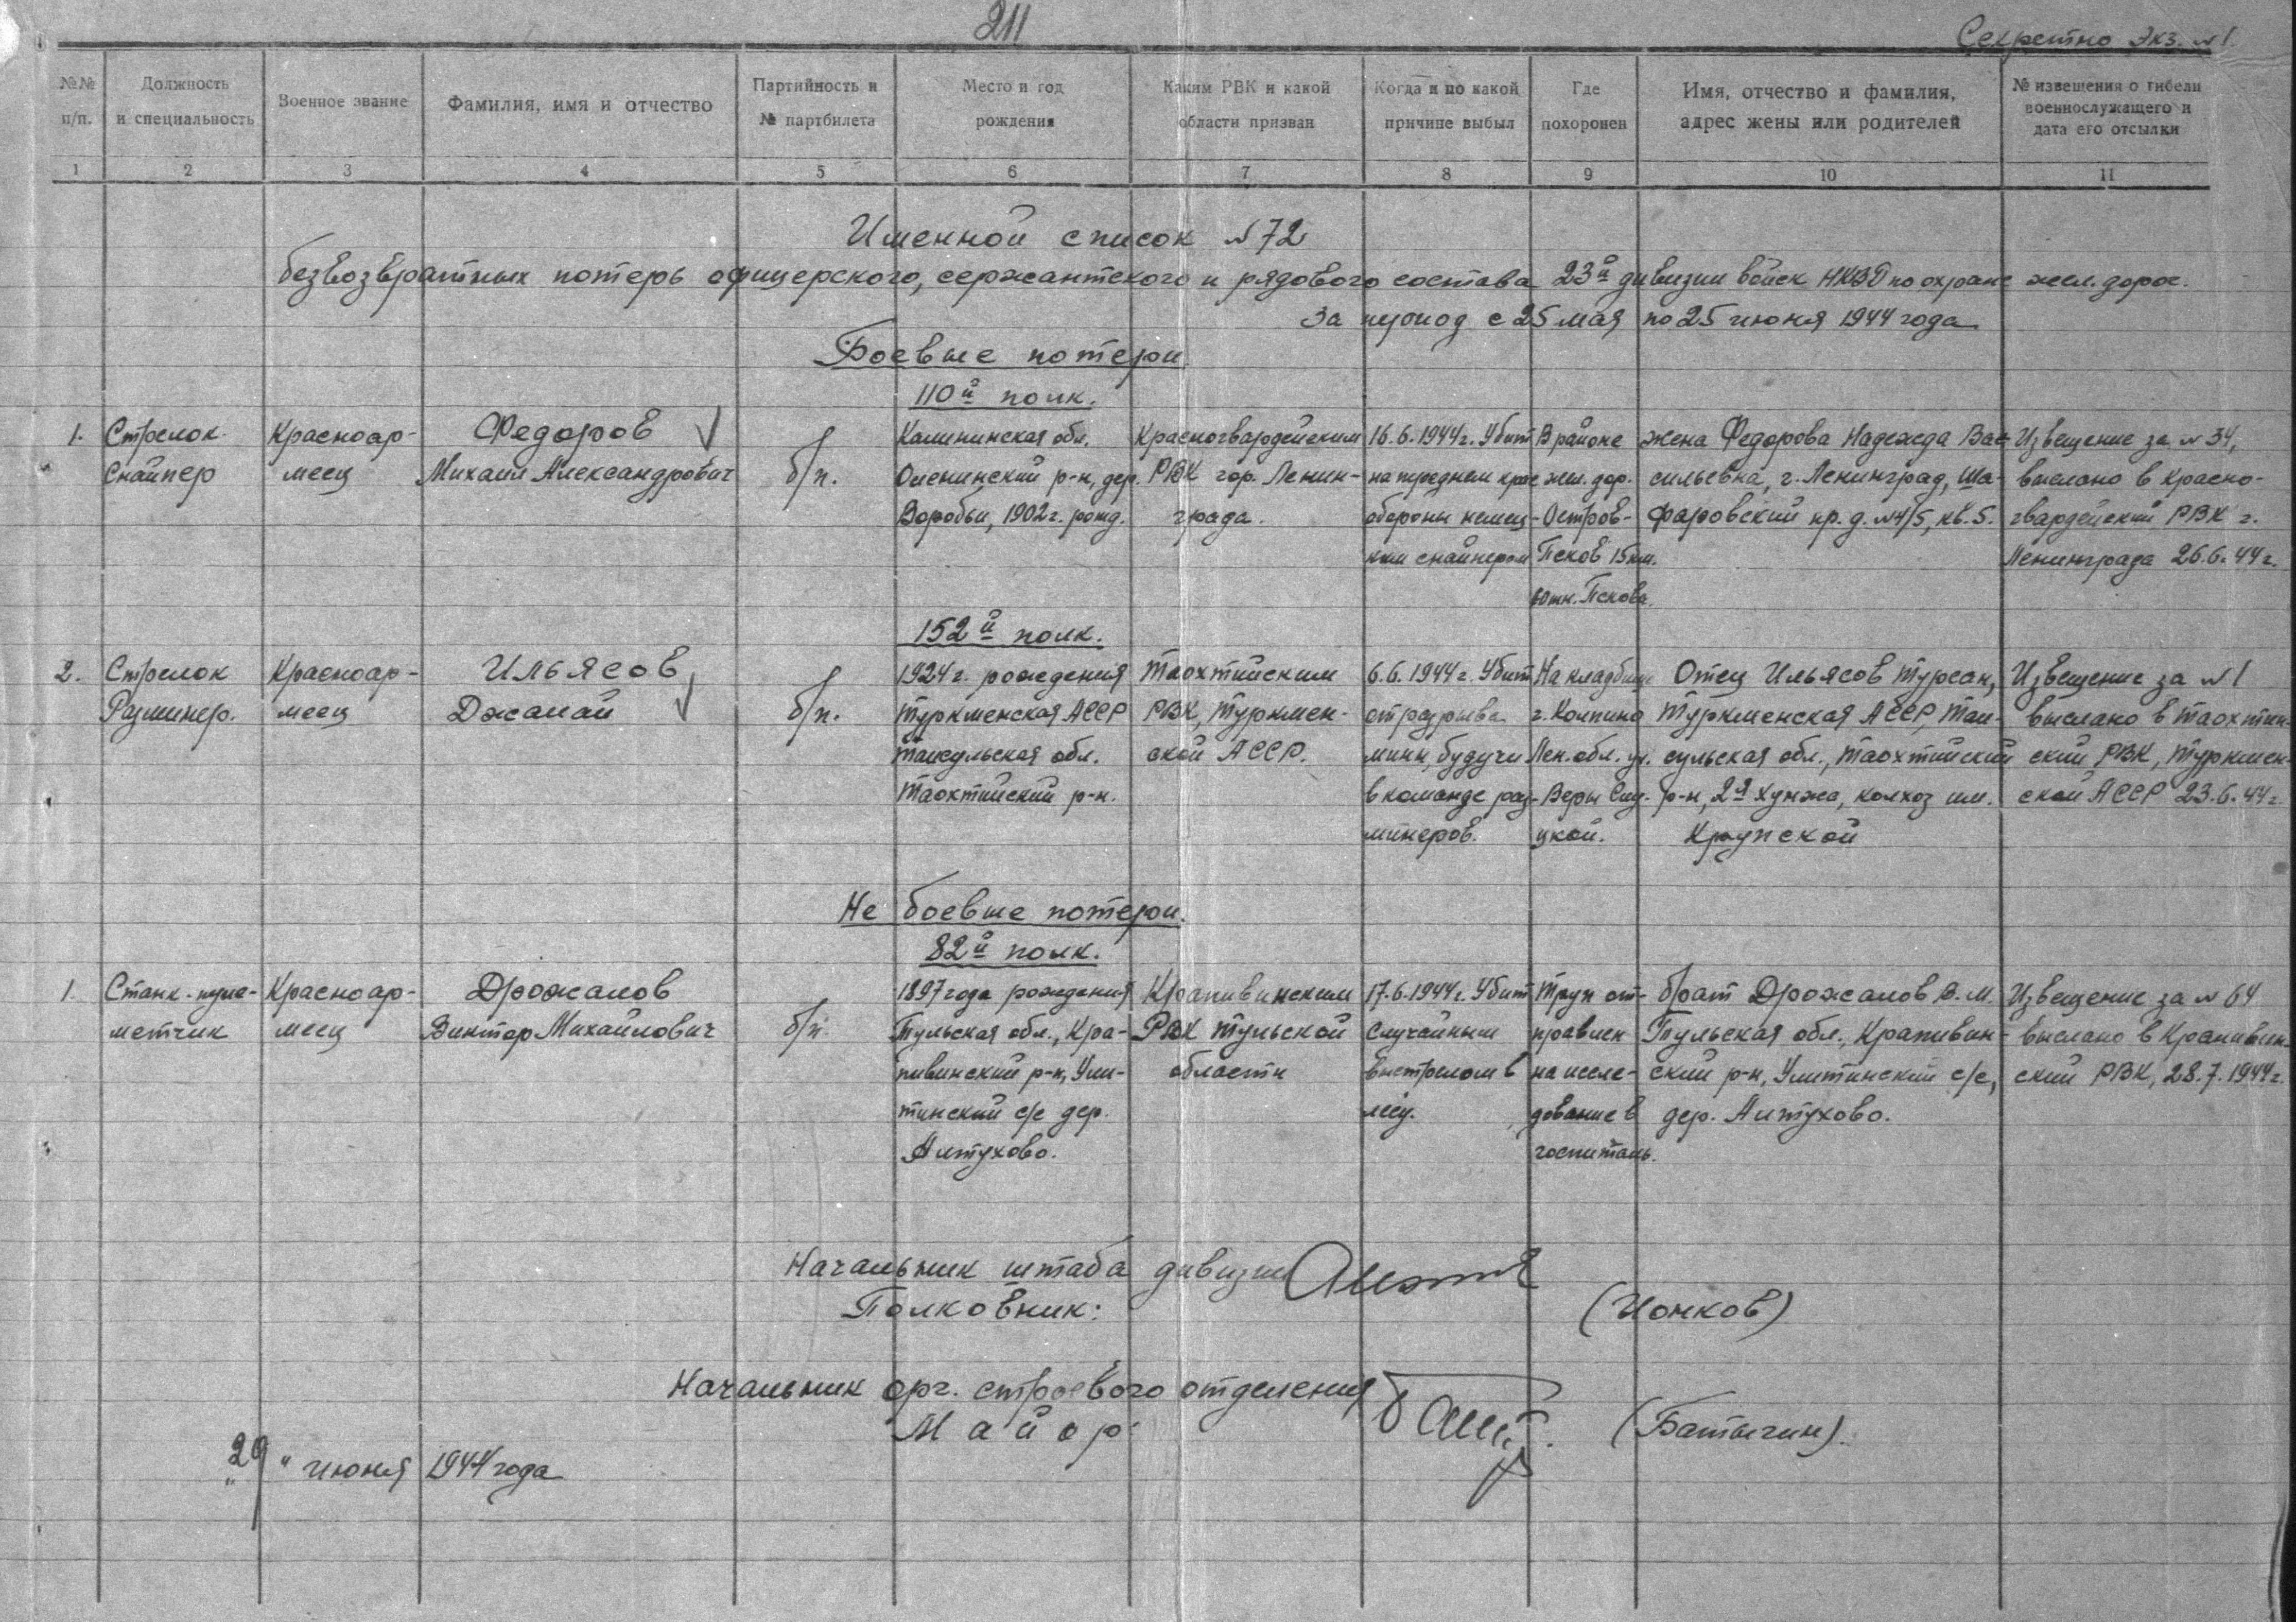 211
Секретно Экз. №1.
№№ п/п.
Должность и специальность
Военное звание
Фамилия, имя и отчество
Партийность и № партбилета
Место и год рождения
Каким РВК и какой области призван
Когда и по какой причине выбыл
Где похоронен
Имя, отчество и фамилия, адрес жены или родителей
№ извещения о гибели военнослужащего и дата его отсылки
1 2 3 4 5 6 7 8 9 10 11
Именной список №72
безвозвратных потерь офицерского, сержантского и рядового состава 23й дивизии войск НКВД по охране жел. дорог.
За период с 25 мая по 25 июня 1944 года
Боевые потери
110й полк.
1.
Стрелок
Снайпер
Красноар-
меец
Федоров
Михаил Александрович
б/п.
Калининская обл.
Оленинский р-н, дер.
Воробьи, 1902г. рожд.
Красногвардейским
РВК гор. Ленин-
града.
16.6.1944г. Убит
на переднем крае
обороны немец-
ким снайпером
В районе
жел. дор.
Остров-
Псков 15км.
Пскова.
жена Федорова Надежда Ва-
сильевна, г. Ленинград, Ша-
фаровский пр. д. №4/5, кв. 5.
Извещение за №34,
выслано в Красно-
гвардейский РВК г.
Ленинграда 26.6.44г.
152й полк.
2.
Стрелок
Разминер.
Красноар-
меец
Ильясов
Джапай
б/п.
1924г. рождения
Туркменская АССР
обл.
Таохтинский р-н.
Таохтинским
РВК, Туркмен-
ской АССР.
6.6.1944г. Убит
от разрыва
мины, будучи
в команде раз-
минеров.
На кладбище
г. Колпино
Лен. обл. ул.
Веры Слу-
цкой.
Отец Ильясов Турсан,
Туркменская АССР, Таш-
сульская обл., Таохтинский
р-н, 2я Хунжа, колхоз им.
Крупской
Извещение за №1
выслано в Таохтин-
ский РВК, Туркмен-
ской АССР 23.6.44г.
Не боевые потери.
82й полк.
1.
Станк. пуле-
метчик
Красноар-
меец
Дрожалов
Виктор Михайлович
б/п
1897 года рождения
Тульская обл., Кра-
пивинский р-н, Ули-
тинский с/с дер.
Алтухово.
Крапивинским
РВК Тульской
области
17.6.1944г. Убит
случайным
выстрелом в
лесу.
Труп от-
правлен
на иссле-
дование в
госпиталь.
брат Дрожалов В. М.
Тульская обл., Крапивин-
ский р-н, Улитинский с/с,
дер. Алтухово.
Извещение за №64
выслано в Крапивин-
ский РВК, 28.7.1944г.
Начальник штаба дивизии
Полковник:
(Ионков)
Начальник орг. строевого отделения
Майор:
(Батыгин).
"29" июня 1944 года